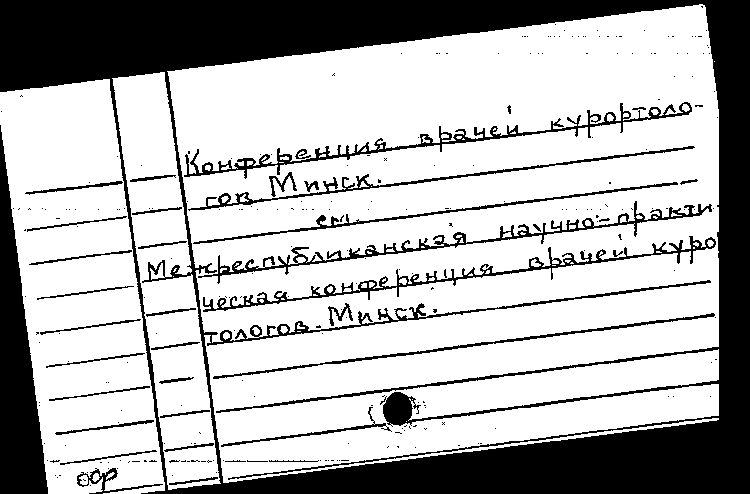 Конференция врачей курортоло-
гов Минск.
см.
Межреспубликанская научно-практи
ческая конференция врачей куро
тологов. Минск.
оср